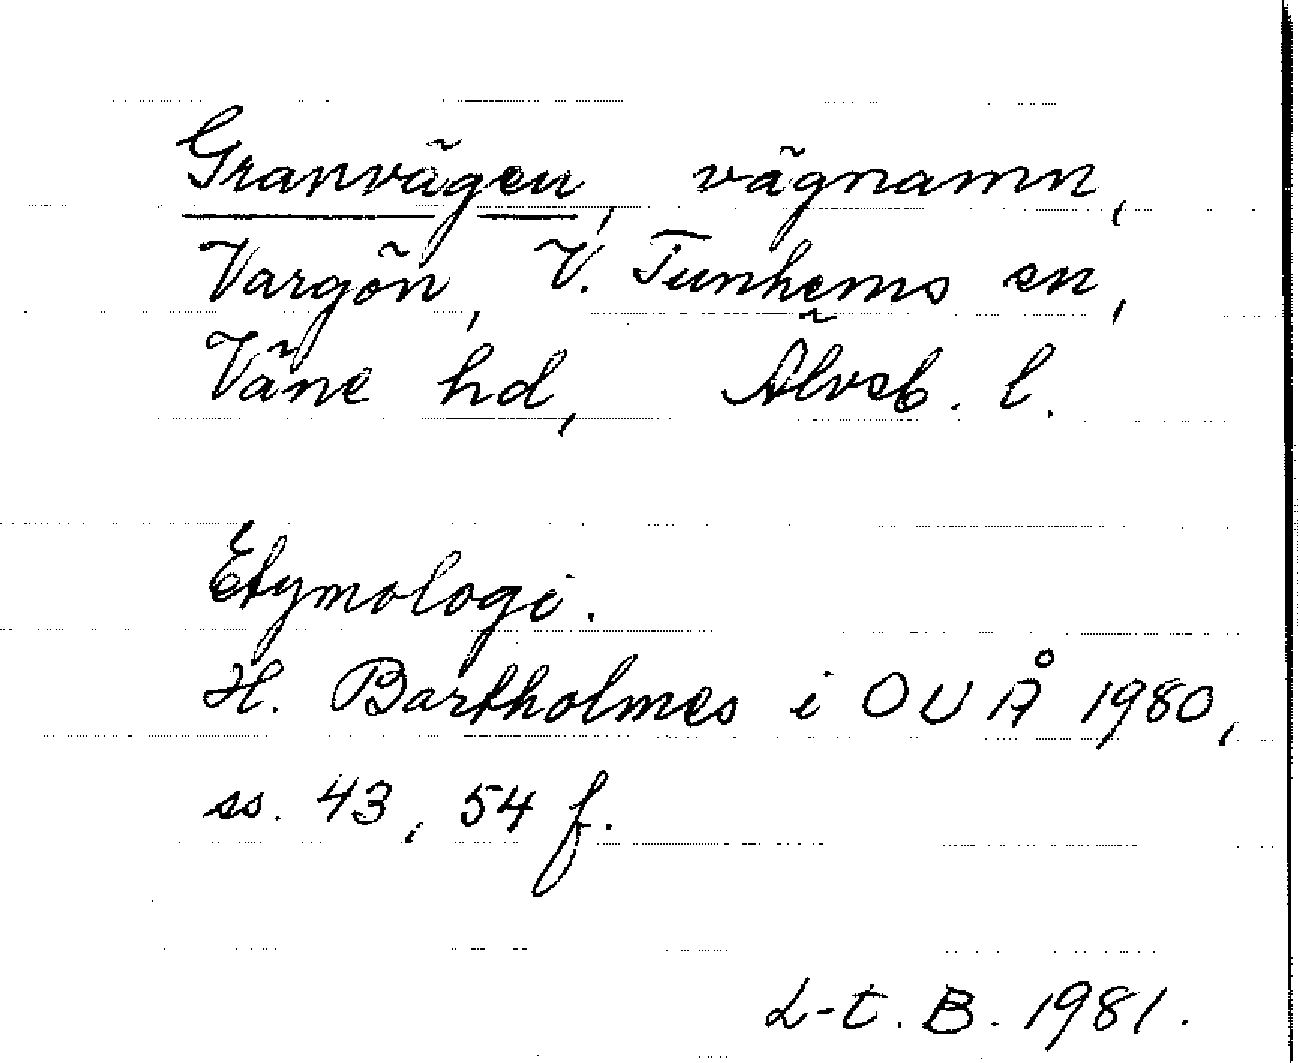 Granvägen, vägnamn,
Vargön, V. Tunhems sn,
Väne hd, Älvsb. l.
Etymologi.
H. Bartholmes i OUÅ 1980,
ss. 43, 54 f.
L-t. B. 1981.